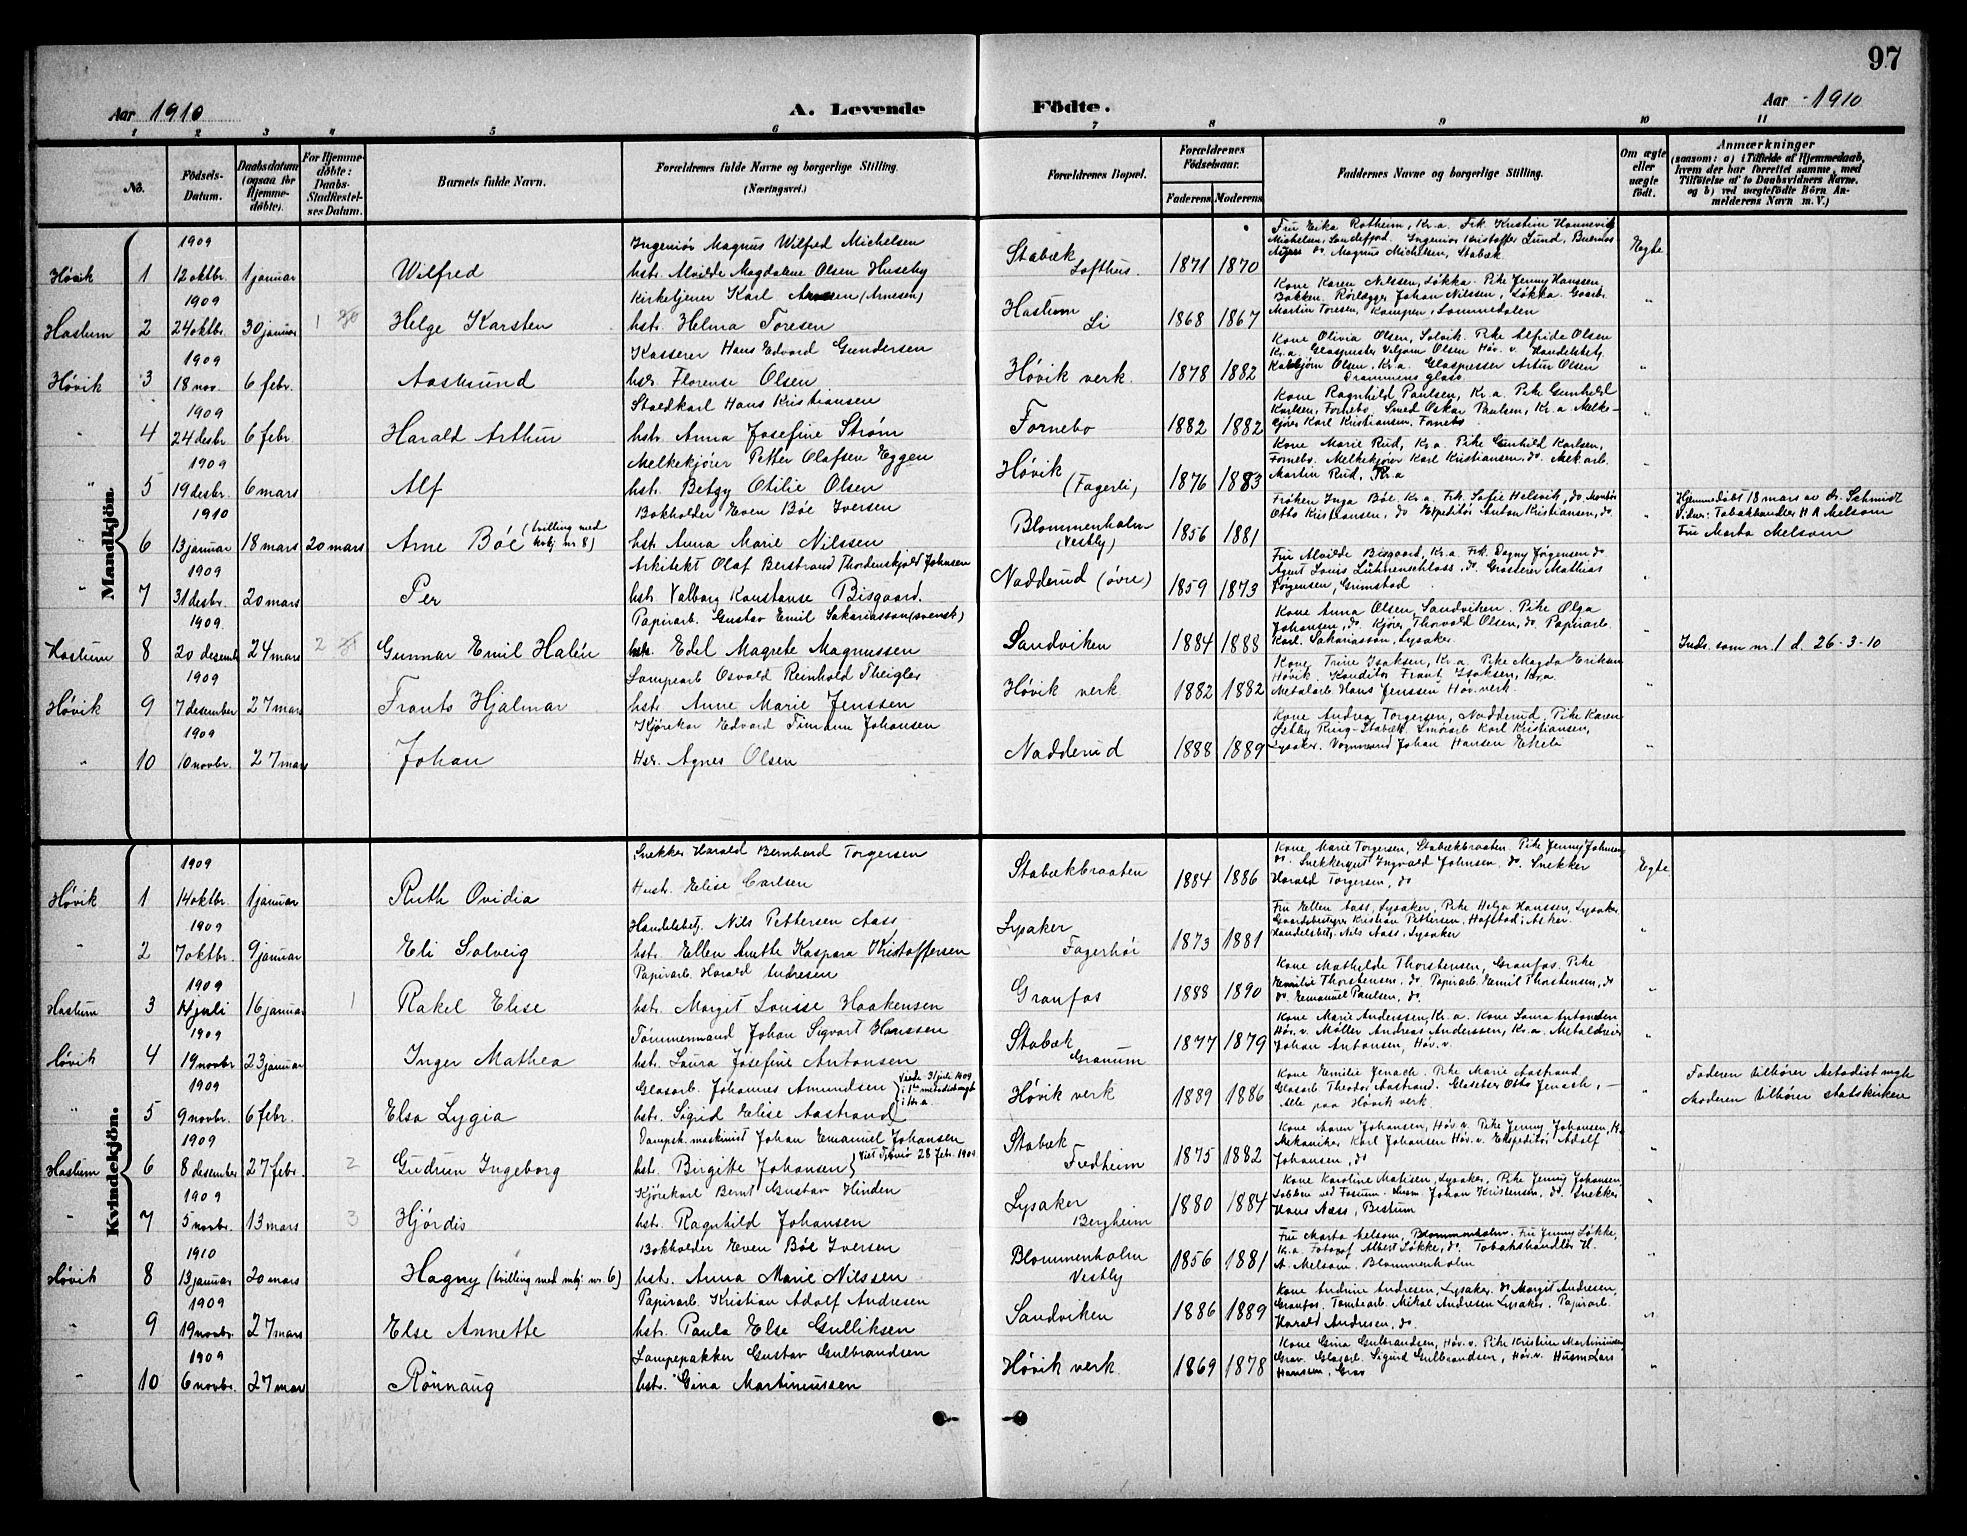 97
Aar 1910 A. Levende Födte. Aar 1910
1 2 3 4 5 6 7 8 9 10 11
No. Födsels-Datum. Daabsdatum (ogsaa for Hjemmedöbte). For Hjemmedöbte: Daabs-Stadfæstelses Datum. Barnets fulde Navn. Forældrenes fulde Navne og borgerlige Stilling. (Næringsvei.) Forældrenes Bopæl. Forældrenes Födselsaar. Faderens Moderens Faddernes Navne og borgerlige Stilling. Om ægte eller uægte födt. Anmærkninger (saasom: a) i Tilfælde af Hjemmedaab, hvem der har forrettet samme, med Tilföielse af to Daabsvidners Navne, og b) ved uægtefödte Börn Anmelderens Navn m. V.)
Mandkjön.
1909 Ingeniør Magnus Wilfred Michelsen Fru Erika Rotheim, Kr.a. Frk. Kristine Hannevik
Høvik 1 12 oktbr. 1 januar Wilfred hstr. Alvilde Magdalene Olsen Huseby Stabæk Lofthus. 1871 1870 Michelsen, Sandefjord. Ingeniør Kristoffer Lund, Buenos Ayres do. Magnus Michelsen, Stabæk Egte
1909 Kirketjener Karl Arnesen (Arnesen) Kone Karen Nilsen, Løkka. Pike Jenny Hanssen,
Haslum 2 24 oktbr. 30 januar 1 Helge Karsten hstr. Helma Toresen Haslum Li 1868 1867 Bakken. Rørlægger Johan Nilssen, Løkka. Gaarb. Martin Toresen, Kampen, Lommedalen "
1909 Kasserer Hans Edvard Gundersen Kone Olivia Olsen, Solvik. Pike Alfride Olsen
Høvik 3 18 nov. 6 febr. Aasmund hstr. Florense Olsen Høvik verk. 1878 1882 Kr.a. Glaspuster Olsen Høv. v. Handelsbetj. Olsen, Kr.a. Glaspresser Artur Olsen Drammens glass. "
1909 Staldkarl Hans Kristiansen Kone Ragnhild Paulsen, Kr.a. Pike Gunhild
" 4 24 desbr 6 febr. Harald Arthur hstr. Anna Josefine Strøm Fornebo 1882 1882 Karlsen, Fornebo. Smed Oskar Paulsen, Kr.a. Melkekjører Karl Kristiansen, Fornebo "
1909 Melkekjører Petter Olafsen Eggen Kone Marie Rud, Kr.a. Pike Gunhild Karlsen,
" 5 19 desbr. 6 mars Alf hstr. Betzy Otilie Olsen Høvik (Fagerli) 1876 1883 Fornebo. Melkekjører Karl Kristiansen, do. Mek.arb. Martin Rud, Kr.a "
1910 Bokholder Even Böe Iversen Frøken Inga Böe, Kr.a. Frk. Sofie Helsvik, do. Montør
" 6 13 januar 18 mars 20 mars Arne Böe (tvilling med kvkj nr. 8) hstr. Anna Marie Nilssen Blommenholm (Vestby) 1856 1881 Otto Kristiansen, do Expeditør Anton Kristiansen, do. " Hjemmedøbt 18 mars av dr. Schmidt Vidner: Tobakhandler H A Melsom Fru Marta Melsom
1909 Arkitekt Olaf Berstrand Thordenskjold Johansen Fru Alvilde Bisgaard, Kr.a. Frk. Dagny Jørgensen do.
" 7 31 desbr. 20 mars Per hstr. Valborg Konstanse Bisgaard. Nadderud (øvre) 1859 1873 Agent Louis Lührenschloss, do. Grosserer Mathias Jørgensen, Grimstad "
1909 Papirarb. Gustav Emil Sakariasson (svensk) Kone Anna Olsen, Sandviken. Pike Olga
Haslum 8 20 desembr 24 mars 2 Gunnar Emil Halén hstr. Edel Magrete Magnussen Sandviken 1884 1888 Johansen, do. Kjører Thorvald Olsen, do. Papirarb. Karl Sakariasson, Lysaker. " Inds. som nr. 1 d. 26-3-10
1909 Lampearb Osvald Reinhold Theigler Kone Trine Isaksen, Kr.a. Pike Magda Eriksen
Høvik 9 7 desember 27 mars Frants Hjalmar hstr. Anne Marie Jenssen Høvik verk. 1882 1882 Høvik. Konditor Frant Isaksen, Kr.a. Metalarb Hans Jenssen Høv. verk. "
1909 Kjørekar Edvard Timann Johansen Kone Andrea Torgersen, Nadderud. Pike Karen
" 10 10 novbr. 27 mars Johan Hstr. Agnes Olsen Nadderud 1888 1889 Østby Ring-Stabæk. Smørarb Karl Kristiansen, Lysaker. Vognmand Johan Hansen Ekeli "
Kvindekjön.
1909 Snekker Harald Bernhard Torgersen Kone Marie Torgersen, Stabækbraaten. Pike Jenny Johnsen
Høvik 1 14 oktbr. 1 januar Ruth Ovidia Hustr. Elise Carlsen Stabækbraaten 1884 1886 do. Snekkersvet Ingvald Johnsen, do. Snekker Harald Torgersen, do Egte
1909 Handelsbetj. Nils Pettersen Aass Fru Ellen Aass, Lysaker, Pike Helga Hanssen, Lysaker
" 2 7 oktbr. 9 januar Eli Solveig hstr. Ellen Anette Kaspara Kristoffersen Lysaker Fagerhøi 1873 1881 Gaardsbestyrer Kristian Pettersen, Hofstad i Asker. Handelsbetj. Nils Aass, Lysaker "
1909 Papirarb. Harald Andresen Kone Mathilde Thorstensen, Granfos. Pike
Haslum 3 14 juli 16 januar 1 Rakel Elise hstr. Margit Louise Haakensen Granfos 1888 1890 Emilie Thorstensen, do. Papirarb. Emil Thorstensen, do do. Emanuel Paulsen, do. "
1909 Tømmermand Johan Sigvart Hanssen Kone Maria Anderssen, Kr.a. Kone Laura Antonsen
Høvik 4 19 novbr 23 januar Inger Mathea hstr. Laura Josefine Antonsen Stabæk Granum 1877 1879 Høv. v. Møller Andreas Anderssen, Kr.a. Metaldreier Johan Antonsen, Høv. v. "
1909 Glasarb. Johannes Amundsen (Viede 31 juli 1909 i 1ste metodistmgh i Kr.a Kone Emilie Jenach. Pike Marie Aastrand,
" 5 9 novbr. 6 febr. Elsa Lygia hstr. Sigrid Elise Aastrand Høvik verk 1889 1886 Glasarb Theodor Aastrand. Glassliber Otto Jenach, - Alle paa Høvik verk. " Faderen tilhører Metodist mgh Moderen tilhører statskirken
1909 Dampsk. maskinist Johan Emanuel Johansen Kone Maren Johansen, Høv. v. Pike Jenny Johansen, Hö
Haslum 6 8 desember 27 febr. 2 Gudrun Ingeborg hstr. Birgitte Johansen (Viet 28 febr. 1909 Stabæk Fredheim 1875 1882 Mekaniker Karl Johansen Høv. v. Expeditör Adolf Johansen, do "
1909 Kjørekarl Bernt Gustav Hinden Kone Karoline Matisen, Lysaker. Pike Jenny Johansen
" 7 5 novbr. 13 mars 3 Hjørdis hstr. Ragnhild Johansen Lysaker Bergheim 1880 1884 Labben ved Fossum. Johan Kristensen, do. Snekker Hans Næss, Bestum "
1910 Bokholder Even Böe Iversen Fru Marta Melsom, Blommenholm. Fru Jenny Løkke,
Høvik 8 13 januar 20 mars Hagny (tvilling med mkj nr. 6) hstr. Anna Marie Nilssen Blommenholm Vestby 1856 1881 Kr.a. Fotograf Albert Løkke, do. Tobakshandler H. A. Melsom, Blommenholm "
1909 Papirarb. Kristian Adolf Andresen Kone Andrine Andresen, Lysaker. do. Margit Andresen,
" 9 19 novbr. 27 mars Else Annette hstr. Paula Else Gulliksen Sandviken 1886 1889 Granfos. Tomtearb. Mikal Andresen Lysaker. Papirarb. Harald Andresen, do. "
1909 Lampepakker Gustav Gulbrandsen Kone Gina Gulbrandsen, Høv. v. Pike Kristine Martiniussen
" 10 6 novbr. 27 mars Rønnaug hstr. Gina Martiniussen Høvik verk 1869 1878 Grav. Glasarb. Sigurd Gulbrandsen, Høv. v. Husm. Lars Hansen, Grav "